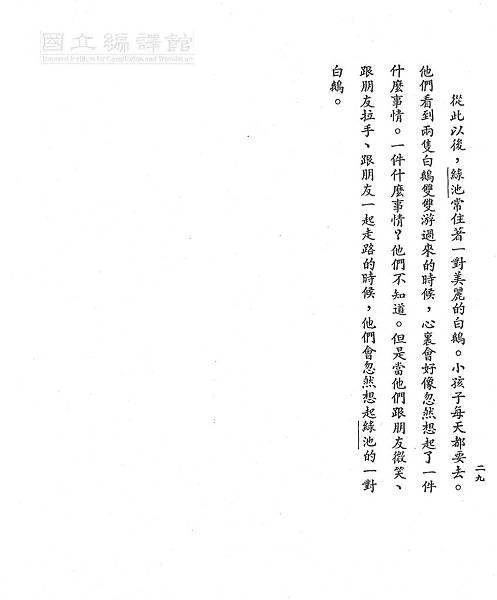 國立編譯館
National Institute for Compilation and Translation
從此以後，綠池常住著一對美麗的白鵝。小孩子每天都要去。
他們看到兩隻白鵝雙雙游過來的時候，心裏會好像忽然想起了一件
什麼事情。一件什麼事情？他們不知道。但是當他們跟朋友微笑、
跟朋友拉手、跟朋友一起走路的時候，他們會忽然想起綠池的一對
白鵝。
二九